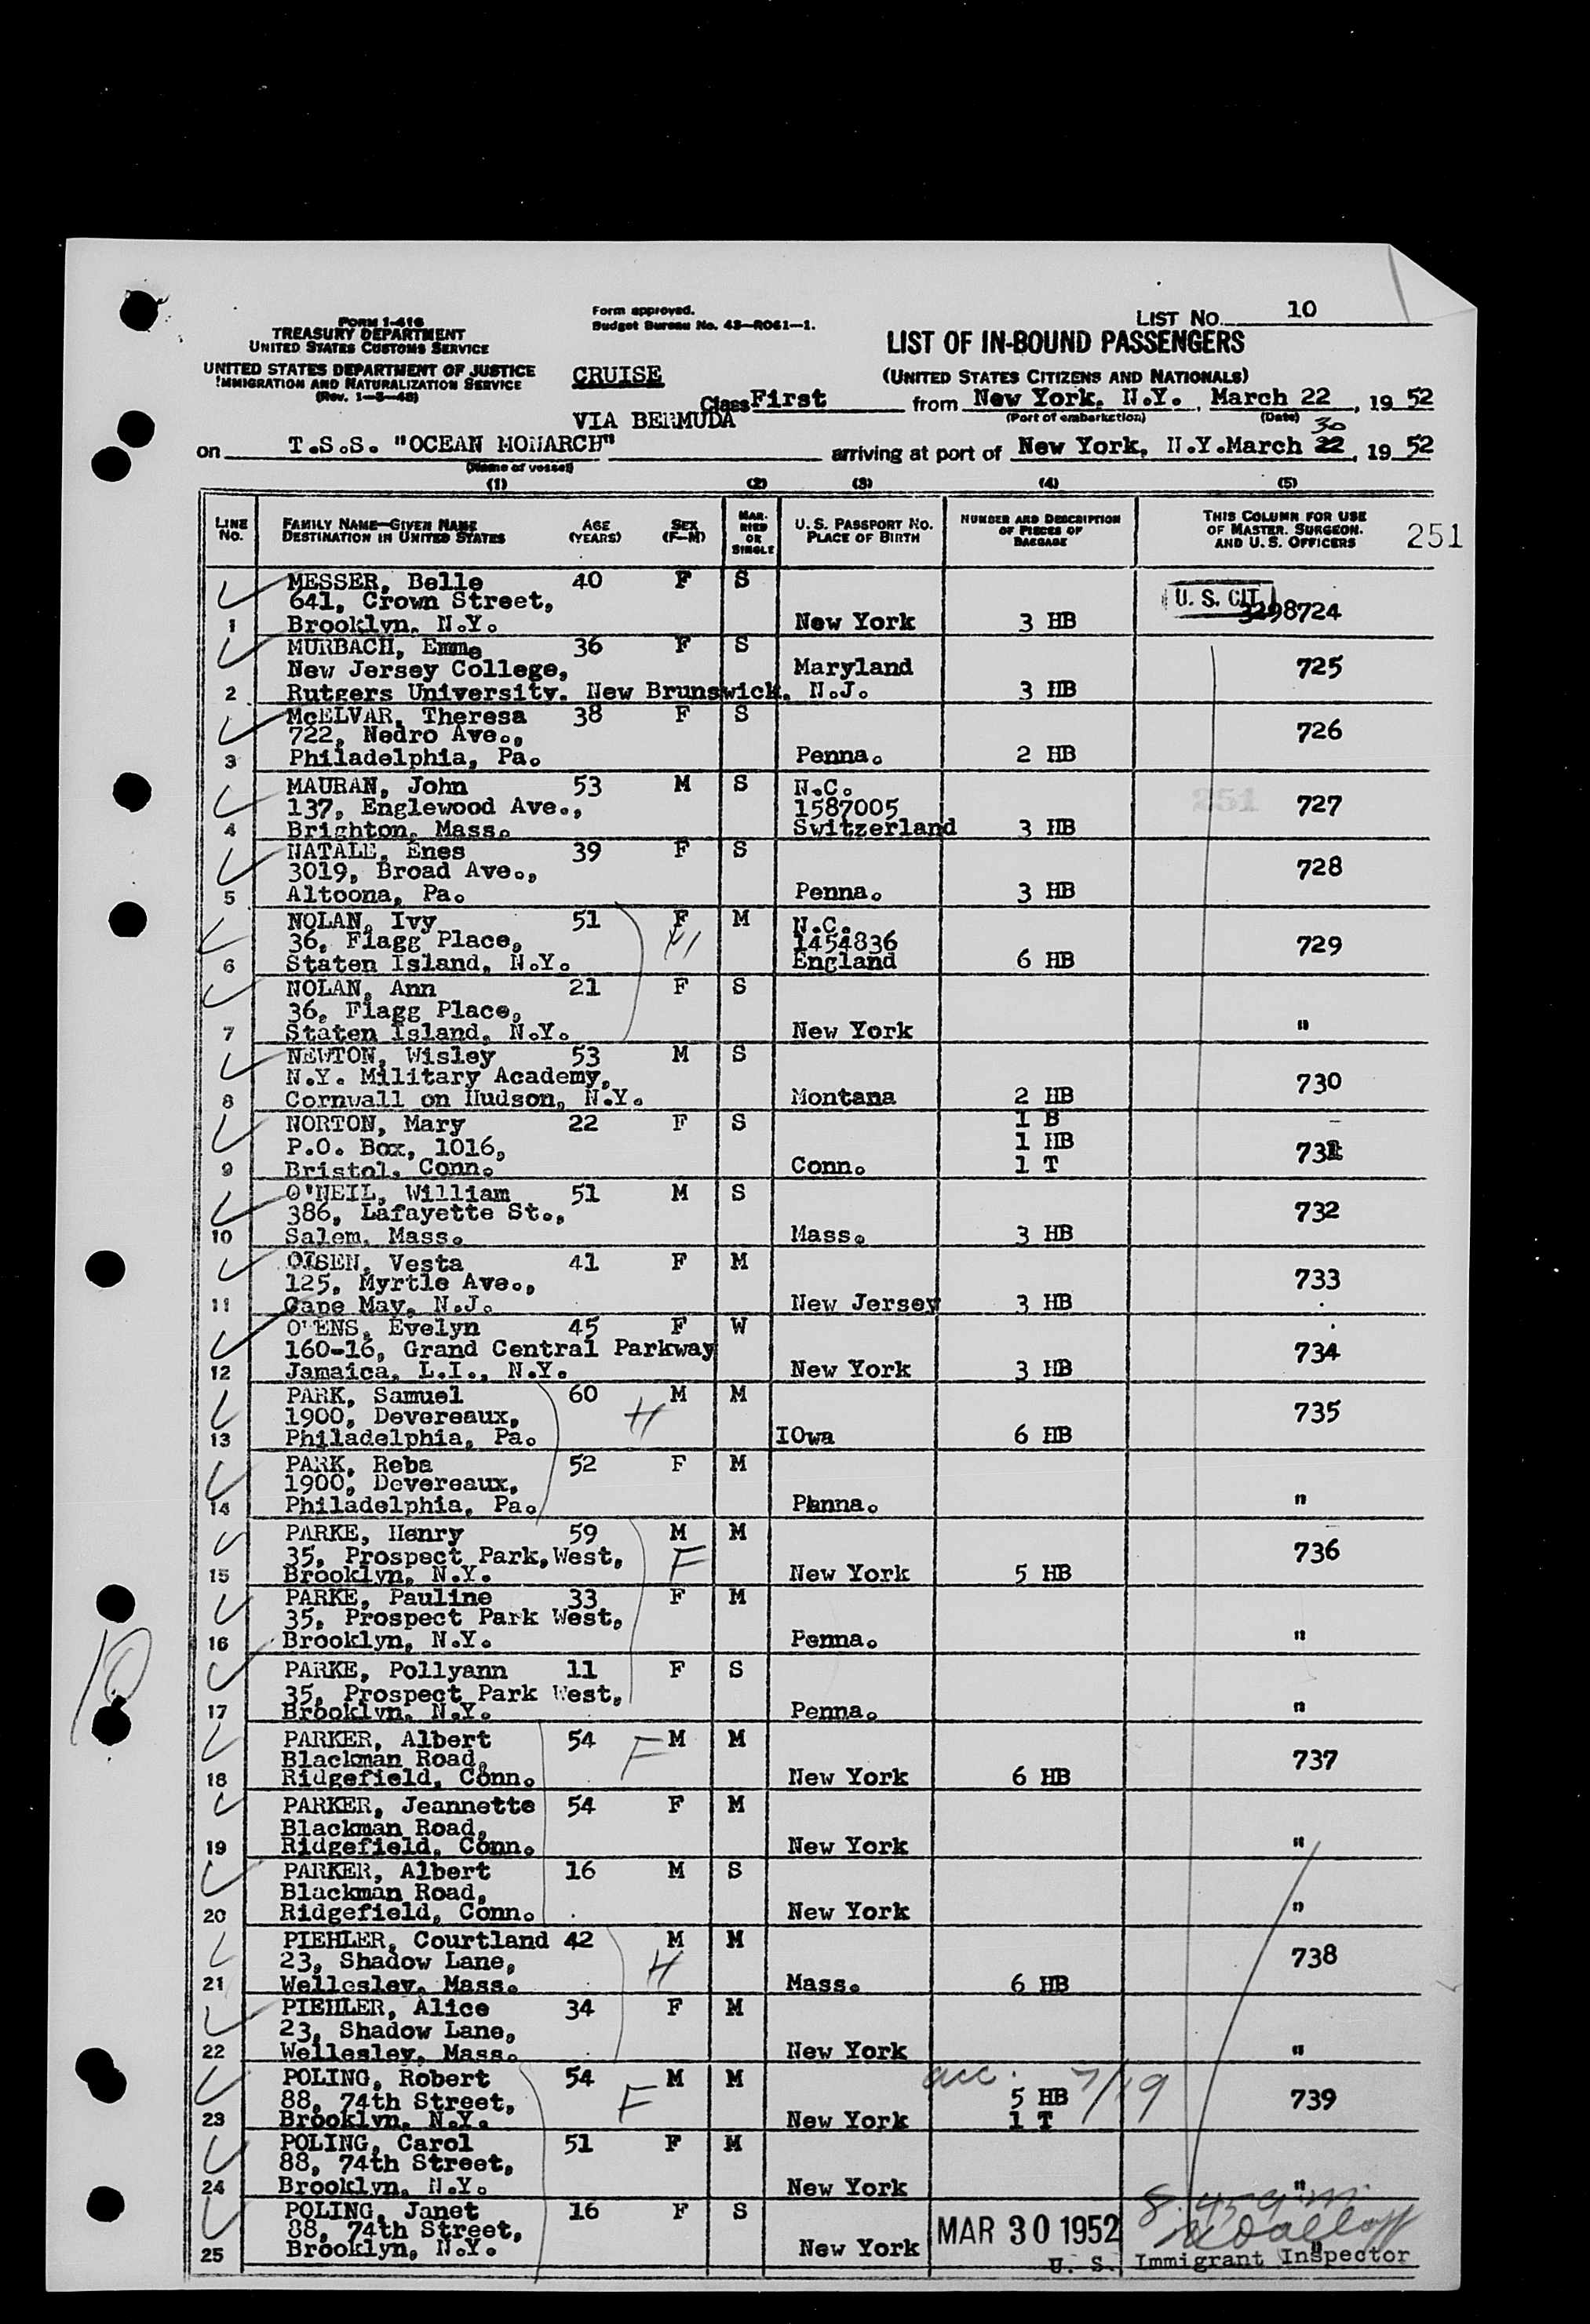 LIST NO. 10
Form approved.
Budget Bureau No. 43—R061—1.
FORM I-416
TREASURY DEPARTMENT
UNITED STATES CUSTOMS SERVICE
UNITED STATES DEPARTMENT OF JUSTICE
IMMIGRATION AND NATURALIZATION SERVICE
(Rev. 1—3—48)
LIST OF IN-BOUND PASSENGERS
(UNITED STATES CITIZENS AND NATIONALS)
CRUISE
VIA BERMUDA
Class First from New York, N.Y., March 22, 1952
(Port of embarkation) (Date)
30
on T.S.S. "OCEAN MONARCH" arriving at port of New York, N.Y. March 22, 1952
(Name of vessel)
(1) (2) (3) (4) (5)
LINE NO. FAMILY NAME—GIVEN NAME DESTINATION IN UNITED STATES AGE (YEARS) SEX (F—M) MARRIED OR SINGLE U. S. PASSPORT NO. PLACE OF BIRTH NUMBER AND DESCRIPTION OF PIECES OF BAGGAGE THIS COLUMN FOR USE OF MASTER, SURGEON, AND U. S. OFFICERS 251
MESSER, Belle 40 F S
641, Crown Street, U. S. CIT. 3298724
1 Brooklyn, N.Y. New York 3 HB
MURBACH, Emme 36 F S
New Jersey College, Maryland 725
2 Rutgers University, New Brunswick, N.J. 3 HB
McELVAR, Theresa 38 F S
722, Nedro Ave., 726
3 Philadelphia, Pa. Penna. 2 HB
MAURAN, John 53 M S N.C.
137, Englewood Ave., 1587005 251 727
4 Brighton, Mass. Switzerland 3 HB
NATALE, Enes 39 F S
3019, Broad Ave., 728
5 Altoona, Pa. Penna. 3 HB
NOLAN, Ivy 51 F M N.C.
36, Flagg Place, 1454836 729
6 Staten Island, N.Y. England 6 HB
NOLAN, Ann 21 F S
36, Flagg Place,
7 Staten Island, N.Y. New York "
NEWTON, Wisley 53 M S
N.Y. Military Academy, 730
8 Cornwall on Hudson, N.Y. Montana 2 HB
NORTON, Mary 22 F S 1 B
P.O. Box, 1016, 1 HB 731
9 Bristol, Conn. Conn. 1 T
O'NEIL, William 51 M S
386, Lafayette St., 732
10 Salem, Mass. Mass. 3 HB
OLSEN, Vesta 41 F M
125, Myrtle Ave., 733
11 Cape May, N.J. New Jersey 3 HB
OWENS, Evelyn 45 F W
160-16, Grand Central Parkway 734
12 Jamaica, L.I., N.Y. New York 3 HB
PARK, Samuel 60 M M
1900, Devereaux, H 735
13 Philadelphia, Pa. IOwa 6 HB
PARK, Reba 52 F M
1900, Devereaux,
14 Philadelphia, Pa. Penna. "
PARKE, Henry 59 M M
35, Prospect Park, West, F 736
15 Brooklyn, N.Y. New York 5 HB
PARKE, Pauline 33 F M
35, Prospect Park West,
16 Brooklyn, N.Y. Penna. "
PARKE, Pollyann 11 F S
35, Prospect Park West,
17 Brooklyn, N.Y. Penna. "
PARKER, Albert 54 F M M
Blackman Road, 737
18 Ridgefield, Conn. New York 6 HB
PARKER, Jeannette 54 F M
Blackman Road,
19 Ridgefield, Conn. New York "
PARKER, Albert 16 M S
Blackman Road,
20 Ridgefield, Conn. New York "
PIEHLER, Courtland 42 M M
23, Shadow Lane, H 738
21 Wellesley, Mass. Mass. 6 HB
PIEHLER, Alice 34 F M
23, Shadow Lane,
22 Wellesley, Mass. New York "
POLING, Robert 54 M M acc. 7/19
88, 74th Street, F 5 HB 739
23 Brooklyn, N.Y. New York 1 T
POLING, Carol 51 F M
88, 74th Street,
24 Brooklyn, N.Y. New York "
POLING, Janet 16 F S 8.45 a.m.
88, 74th Street, MAR 30 1952
25 Brooklyn, N.Y. New York "
U. S. Immigrant Inspector
10